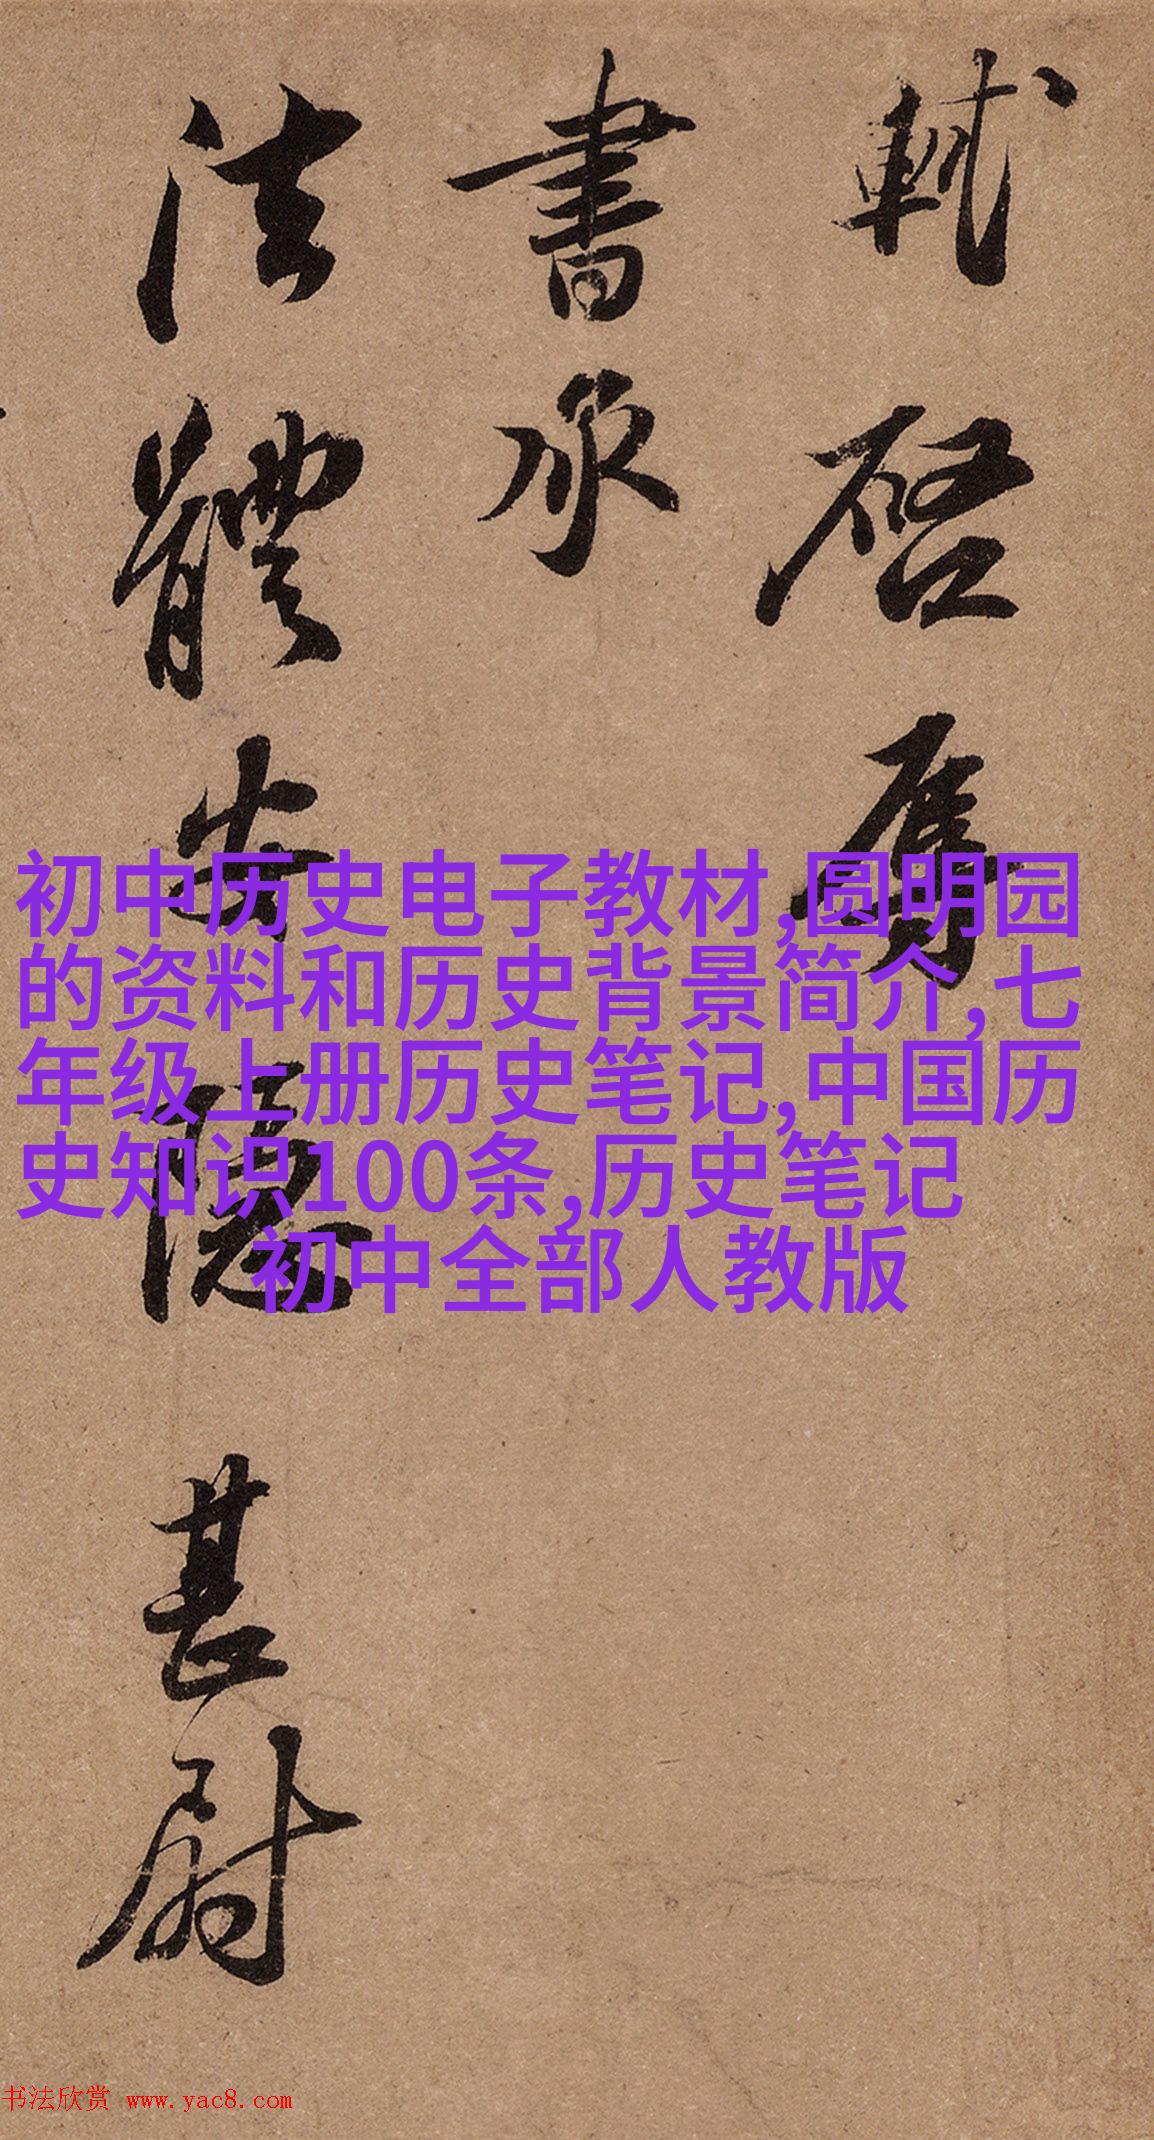 軾啓辱
書承
法體安隱甚尉
初中历史电子教材,圆明园
的资料和历史背景简介,七
年级上册历史笔记,中国历
史知识100条,历史笔记
初中全部人教版
书法欣赏 www.yac8.com